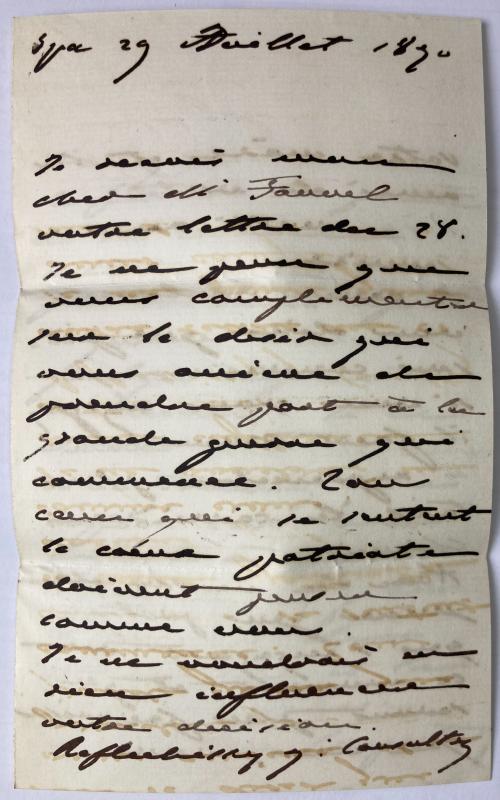 Spa 29 Juillet 1870
Je reçois mon
cher Mr Fauvel
votre lettre du 28.
Je ne peux que
vous complimenter
sur le désir qui
vous anime de
prendre part à la
grande guerre qui
commence. Tous
ceux qui se sentent
le coeur patriote
doivent penser
comme vous.
Je ne voudrais en
rien influencer
votre décision.
Réfléchissez y. Consultez